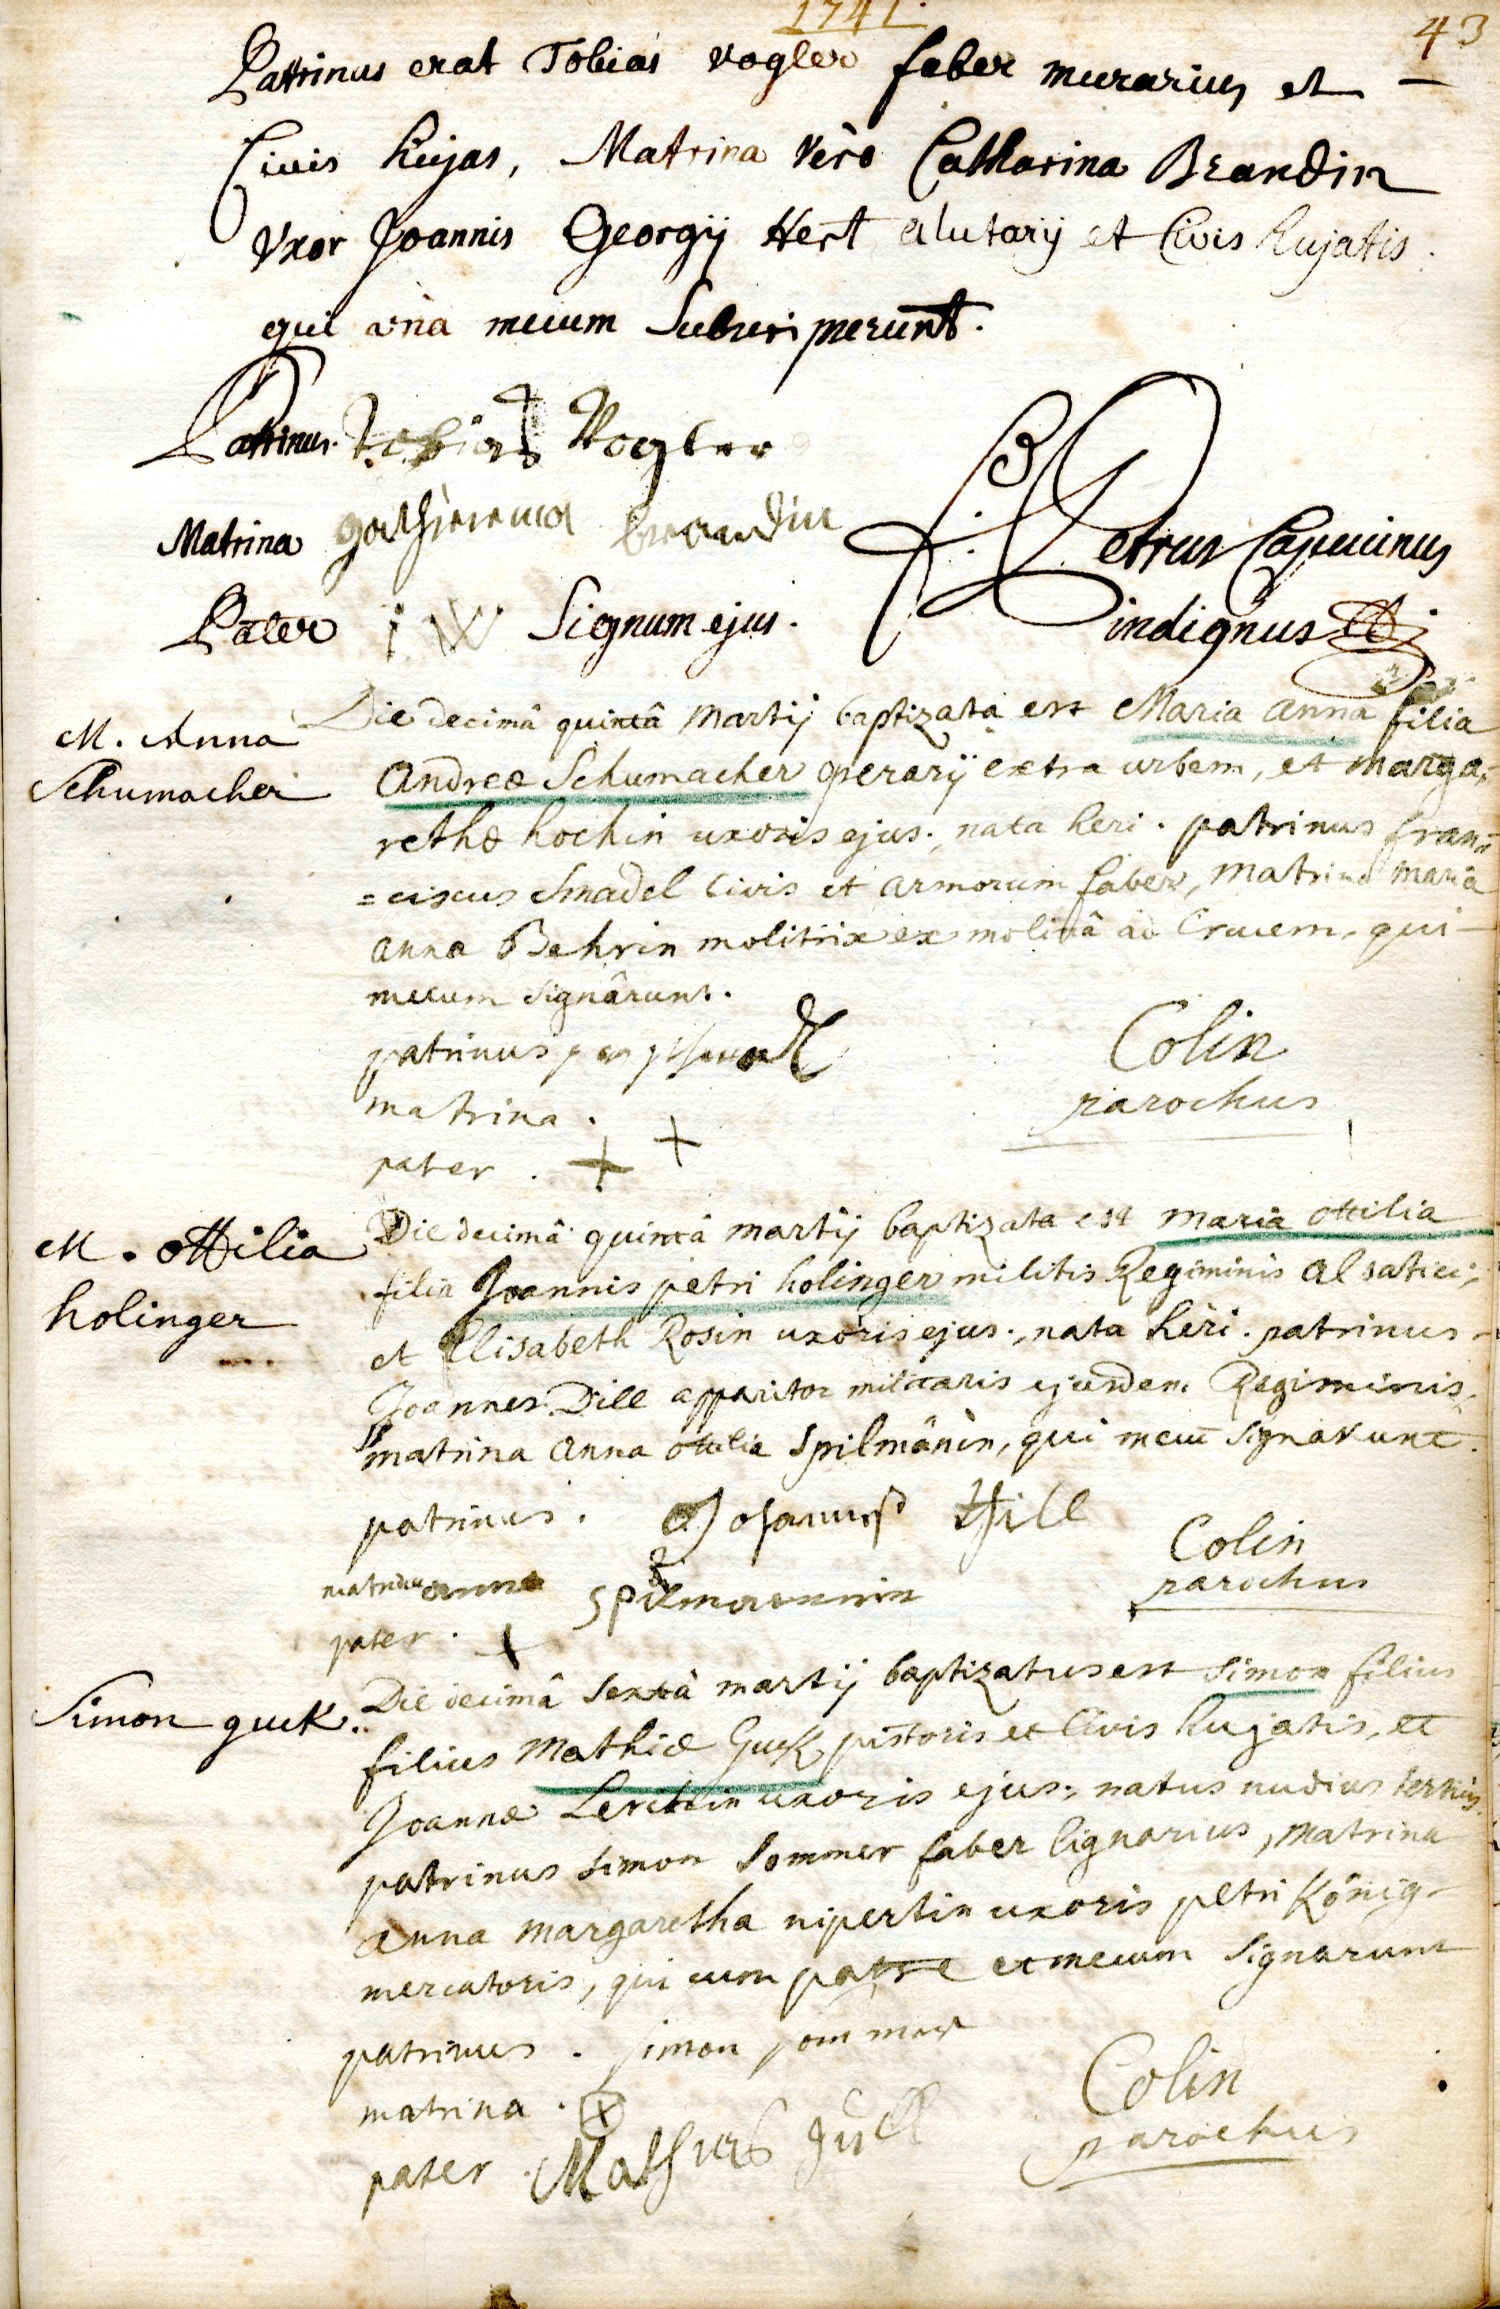 1741.
43
Pattrinus erat Tobias Vogler faber murarius et
Civis hujas, Matrina vèro Catharina Brandin
Vxor Joannis Georgij Hert alutarij et Civis hujatis.
qui vna mecum Subscripserunt.
Pattrinus. Tobias Vogler
Matrina gathirina brandin
P. Petrus Capucinus
indignus
Pater i W Signum ejus.
M. Anna
Schumacher
Die decimâ quintâ Martij baptizata est Maria Anna filia
Andreæ Schumacher operarij extra urbem, et marga=
rethæ hochin uxoris ejus., nata heri. patrinus fran=
=ciscus Smadel civis et armorum faber, Matrina maria
anna Behrin molitrix ex molinâ ad Crucem, qui
mecum signârunt.
patrinus
Colin
parochus
matrina. +
pater. +
M. ottilia
holinger
Die decimâ quintâ martij baptizata est maria ottilia
filia Joannis petri holinger militis Regiminis alsatici,
et Elisabeth Rosin uxoris ejus., nata heri. patrinus
Joannes Dill apparitor militaris ejusdem Regiminis,
matrina anna ottilia Spilmänin, qui mecū signarunt.
patrinus. Johannes Till
Colin
parochus
matrina anna spilmannin
pater. +
Simon guck.
Die decimâ sextâ martij baptizatus est simon filius
filius Mathiæ Guck pistoris et civis hujatis, et
Joannæ uxoris ejus., natus nudius tertius.
patrinus simon sommer faber lignarius, matrina
anna margaretha nipertin uxoris petri König
mercatoris, qui cum patre et mecum signarunt
patrinus. simon sommer
Colin
parochus
matrina. x
pater. Mathias guck